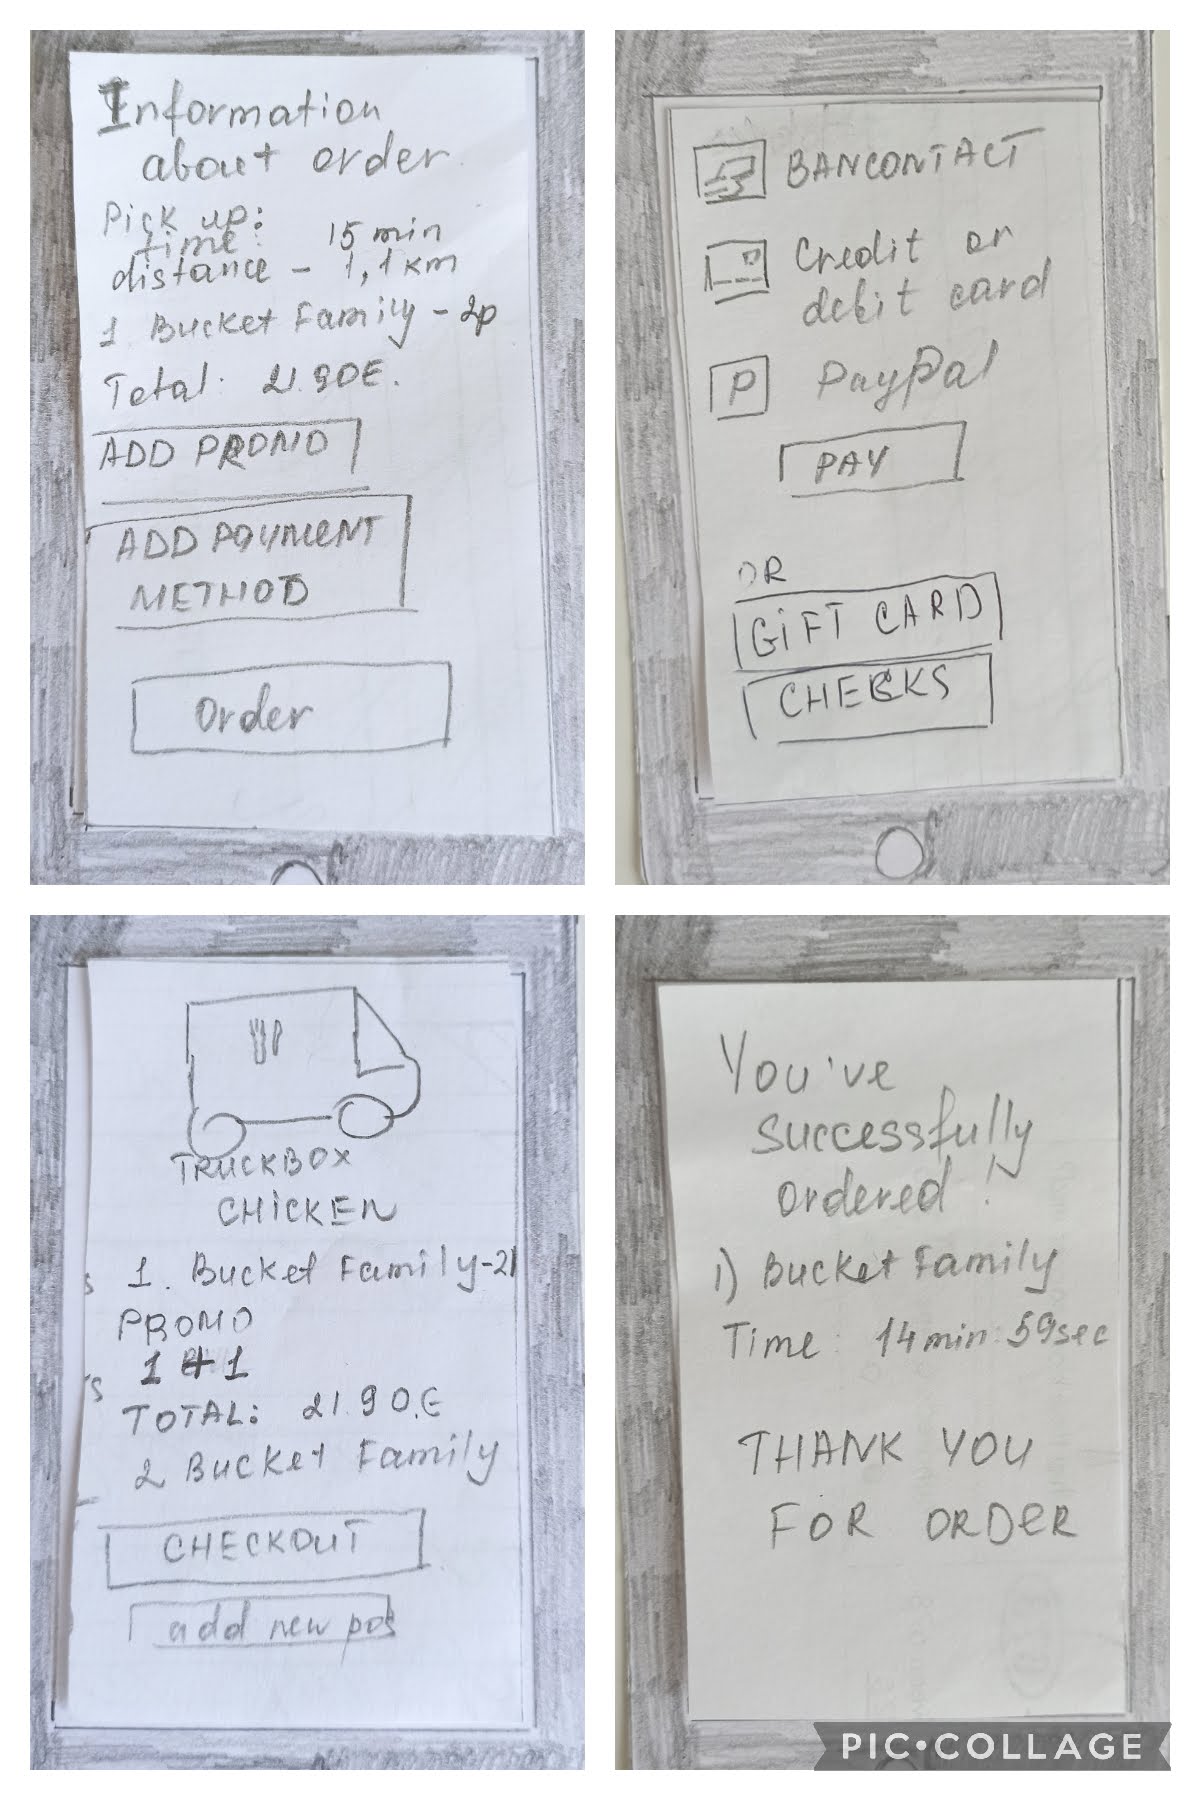 Information
about order
Pick up:
time: 15 min
distance - 1,1 km
1. Bucket Family - 2p
Total: 21.90E.
ADD PROMO
ADD PAYMENT
METHOD
Order
BANCONTACT
Credit or
debit card
P PayPal
PAY
OR
GIFT CARD
CHECKS
TRUCKBOX
CHICKEN
1. Bucket Family-2
PROMO
1+1
TOTAL: 21.90.E
2 Bucket Family
CHECKOUT
add new pos
You've
successfully
ordered!
1) Bucket Family
Time: 14 min: 59sec
THANK YOU
FOR ORDER
PIC•COLLAGE